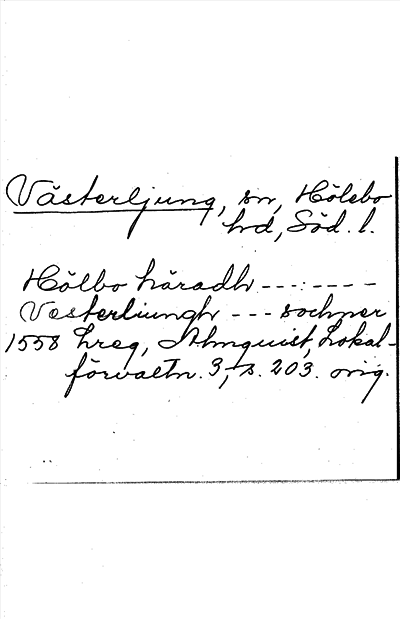 Västerljung, sn, Hölebo
hd, Söd. l.
Hölbo häradh ---:----
Vesterliungh --- sochner
1558 hreg, Almquist, Lokal-
förvaltn. 3, s. 203. orig.